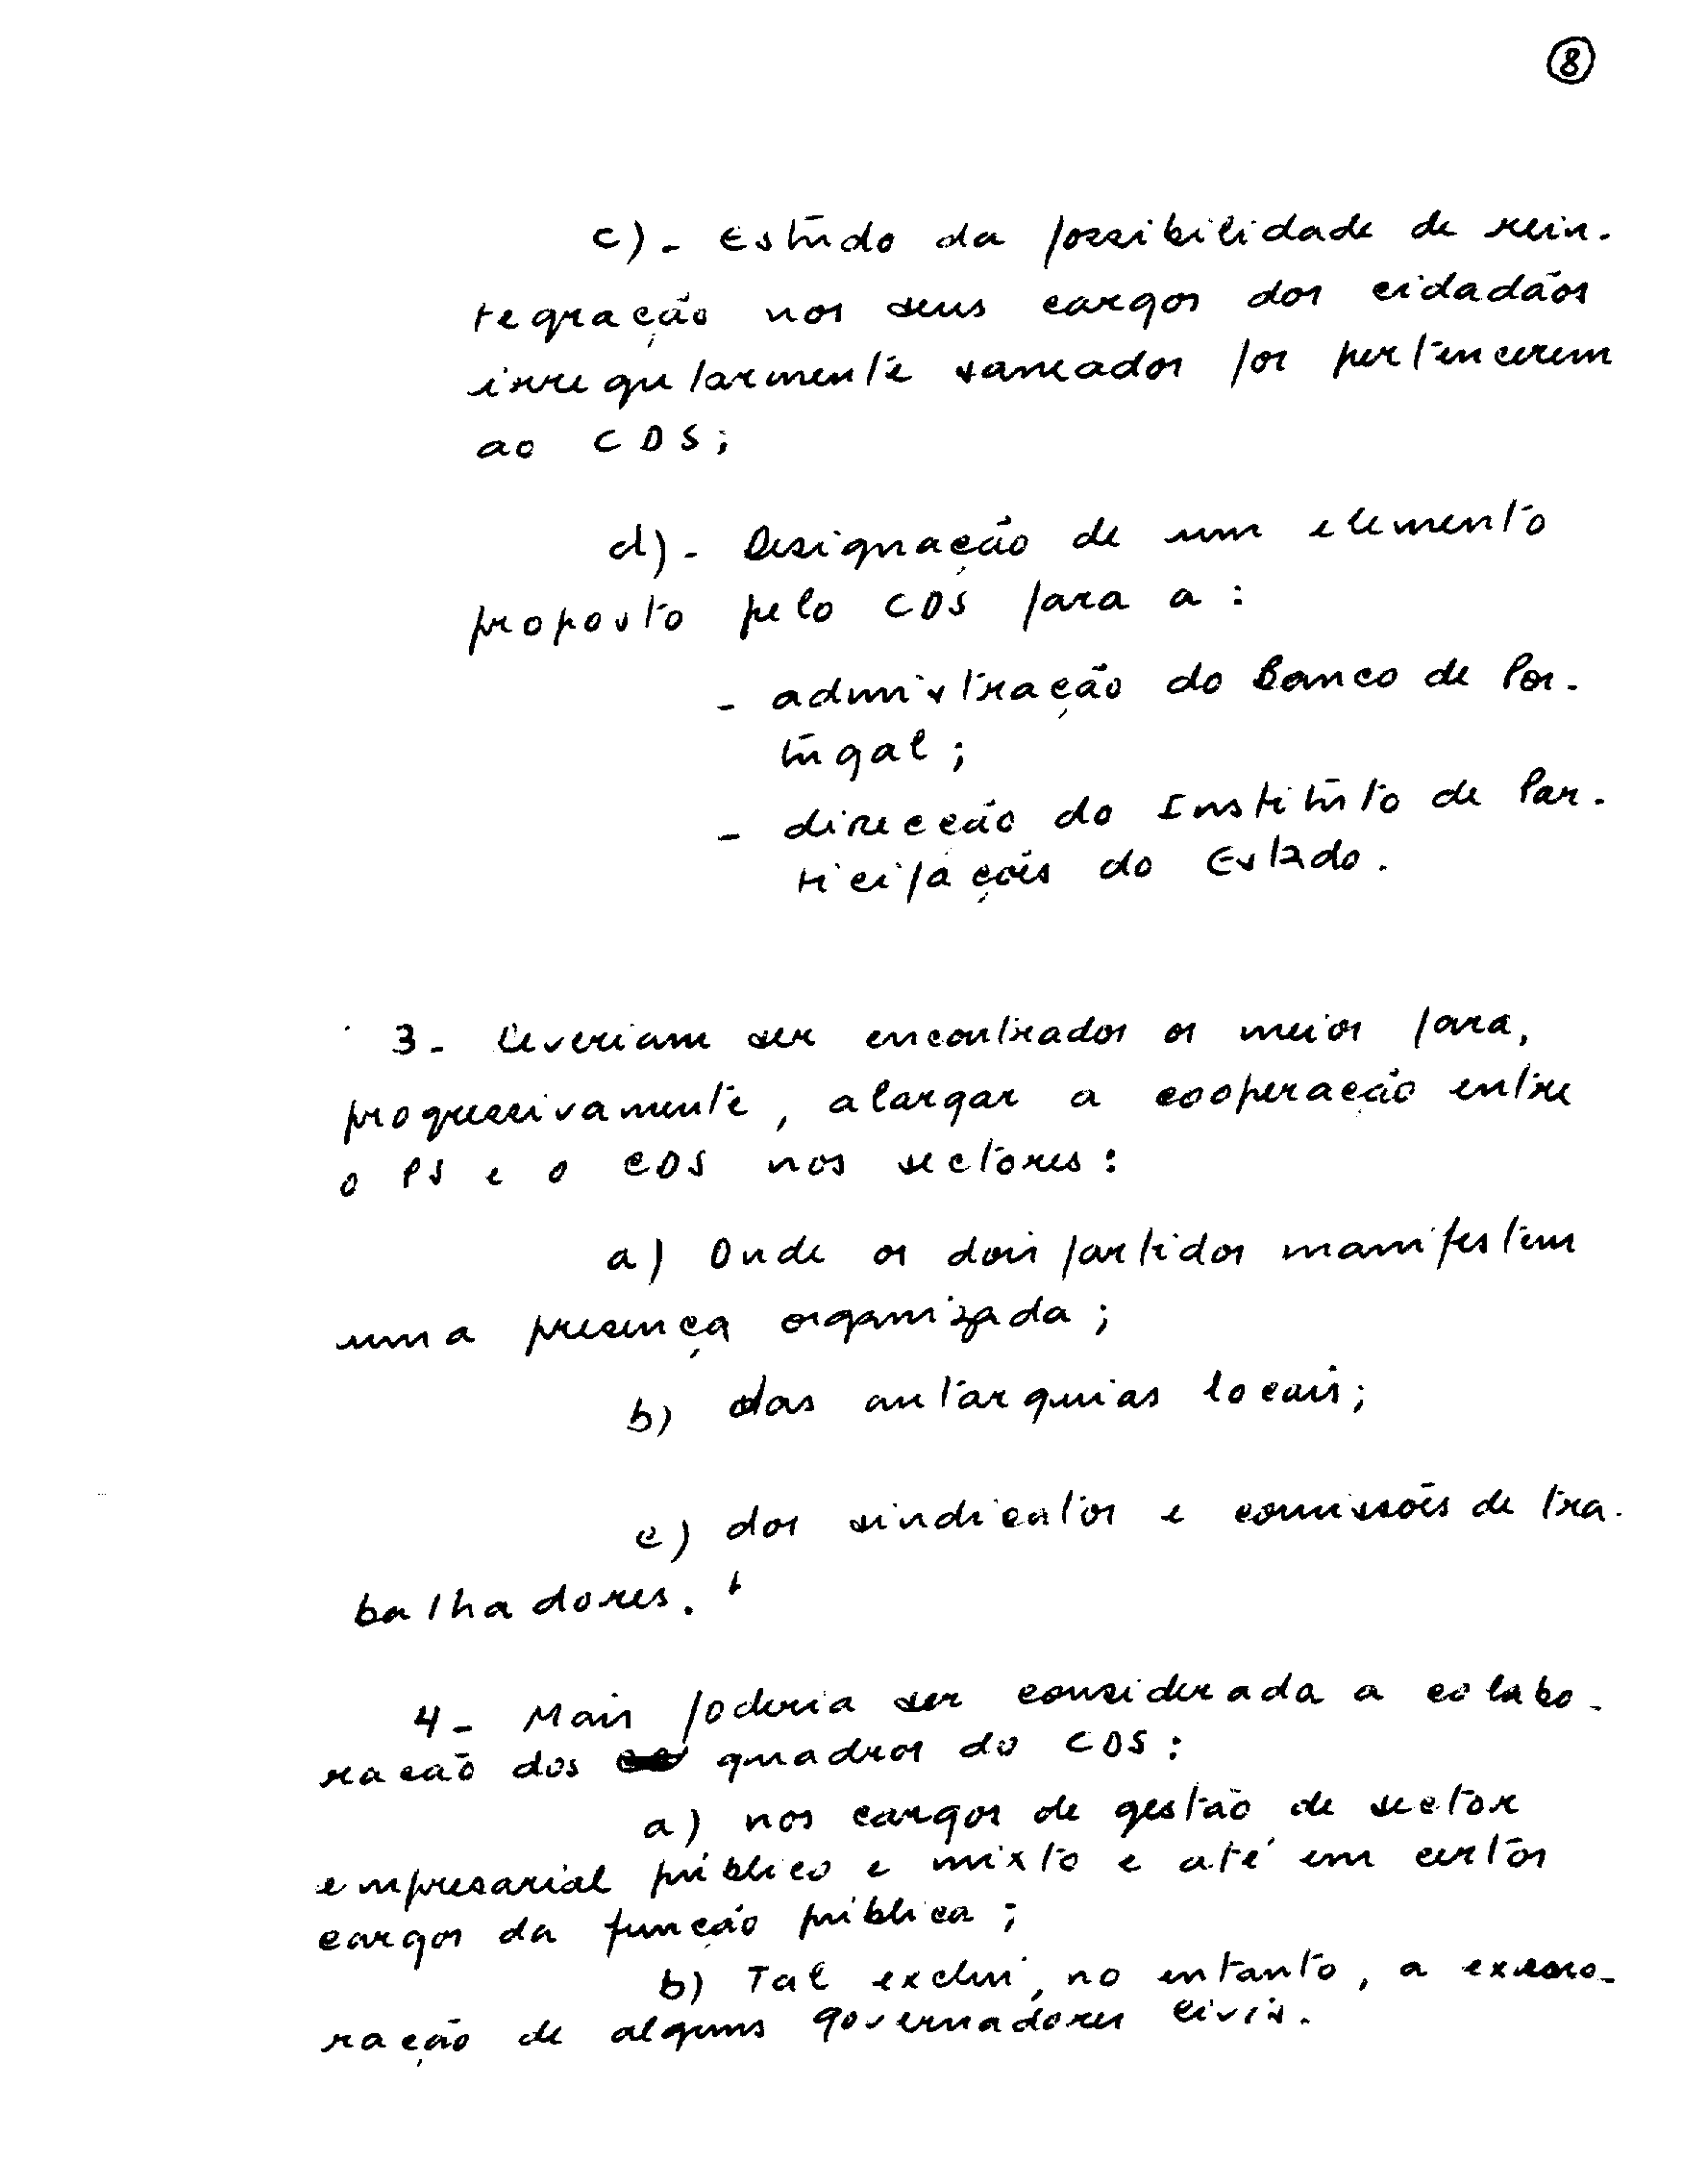 8
c)- Estudo da possibilidade de rein-
tegração nos seus cargos dos cidadãos
irregularmente saneados por pertencerem
ao CDS;
d)- Designação de um elemento
proposto pelo CDS para a:
- admistração do Banco de Por-
tugal;
- direcção do Instituto de Par-
ticipações do Estado.
3- Deveriam ser encontrados os meios para,
progressivamente, alargar a cooperação entre
o PS e o CDS nos sectores:
a) Onde os dois partidos manifestem
uma presença organizada;
b) das autarquias locais;
c) dos sindicatos e comissões de tra-
balhadores.
4- Mais poderia ser considerada a colabo-
ração dos quadros do CDS:
a) nos cargos de gestão de sector
empresarial público e mixto e até em certos
cargos da função pública;
b) Tal exclui, no entanto, a
de alguns governadores civis.